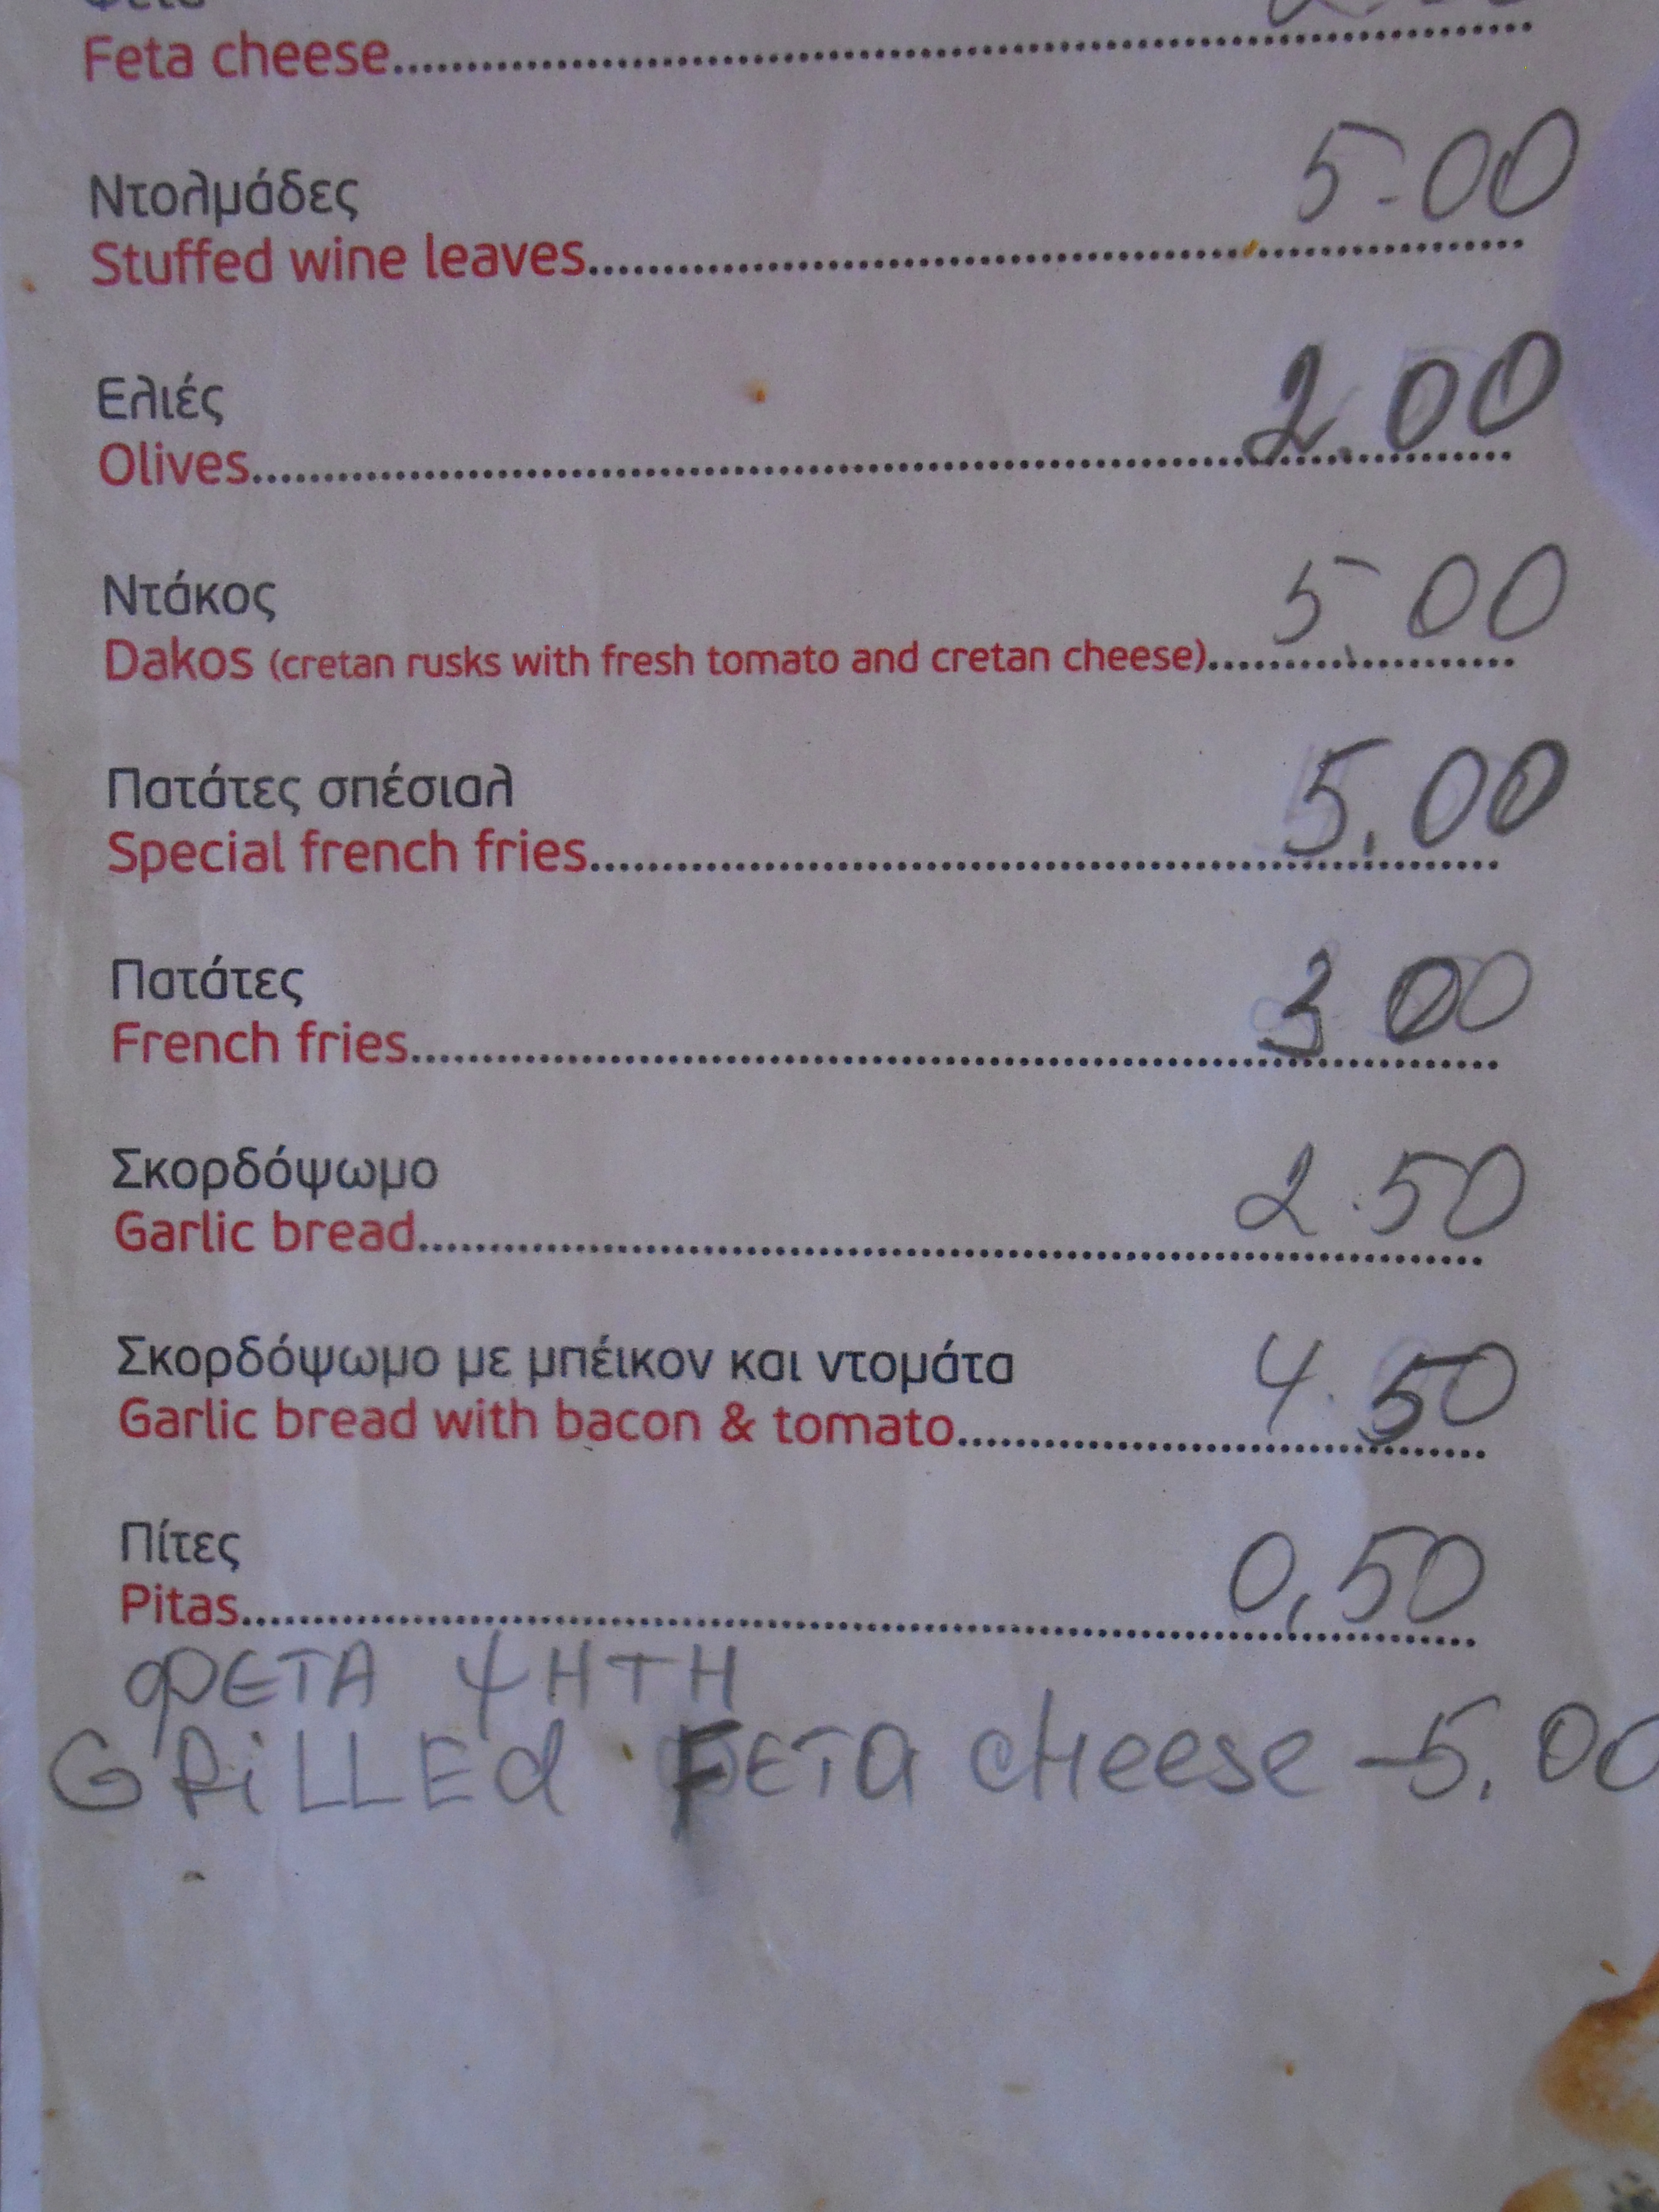 Feta cheese
Ντολμάδες 5.00
Stuffed wine leaves
Ελιές 2.00
Olives
Ντάκος 5.00
Dakos (cretan rusks with fresh tomato and cretan cheese)
Πατάτες σπέσιαλ 5,00
Special french fries
Πατάτες 3 00
French fries
Σκορδόψωμο 2.50
Garlic bread
Σκορδόψωμο με μπέικον και ντομάτα 4.50
Garlic bread with bacon & tomato
Πίτες 0,50
Pitas
ΦΕΤΑ ΨΗΤΗ
GRiLLEd FETa cHeese - 5.00